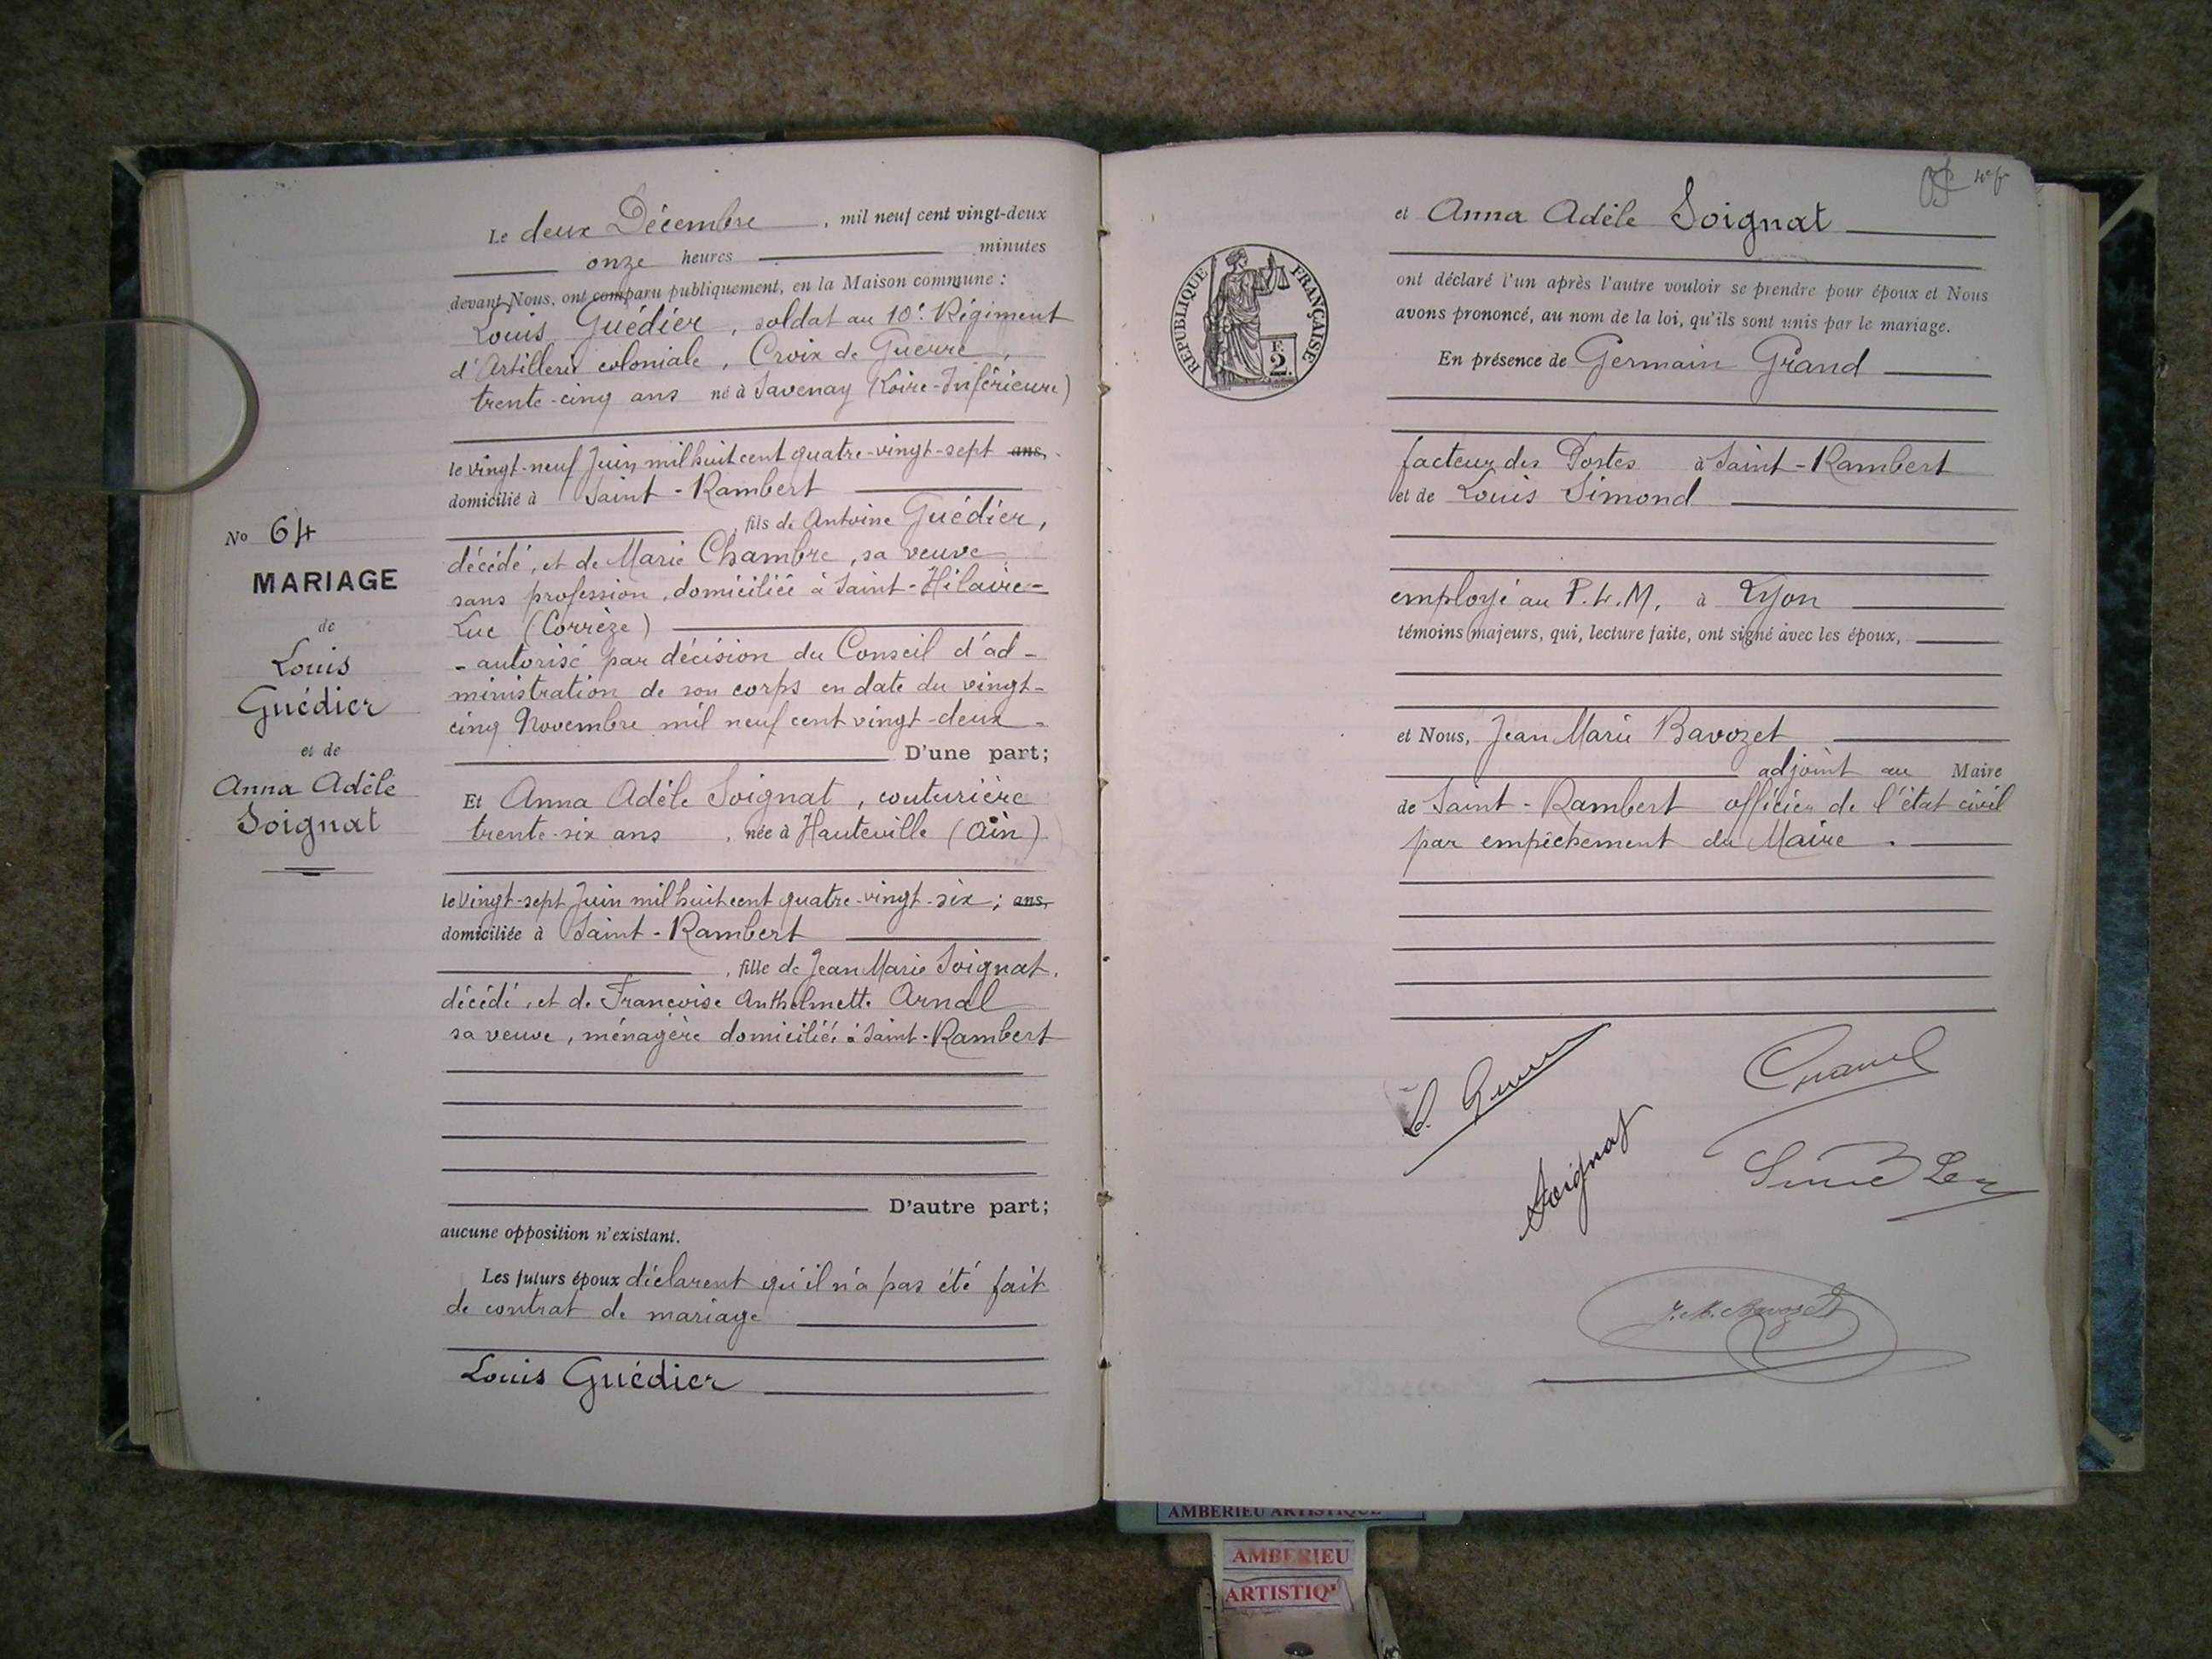 Le deux Décembre, mil neuf cent vingt-deux
onze heures minutes
devant Nous, ont comparu publiquement, en la Maison commune :
Louis Guédier, soldat au 10e Régiment
d'Artillerie coloniale, Croix de Guerre,
trente-cinq ans né à Savenay (Loire-Inférieure)
le vingt-neuf Juin mil huit cent quatre-vingt-sept ans,
domicilié à Saint-Rambert
, fils de Antoine Guédier,
décédé, et de Marie Chambre, sa veuve
sans profession, domiciliée à Saint-Hilaire-
Luc (Corrèze)
- autorisé par décision du Conseil d'ad-
ministration de son corps en date du vingt-
cinq Novembre mil neuf cent vingt-deux -
D'une part;
Et Anna Adèle Soignat, couturière
trente-six ans, née à Hauteville (Ain)
le vingt-sept Juin mil huit cent quatre-vingt-six ; ans,
domiciliée à Saint-Rambert
, fille de Jean Marie Soignat,
décédé, et de Françoise Anthelmette Arnal
sa veuve, ménagère domiciliée à Saint-Rambert
D'autre part;
aucune opposition n'existant.
Les futurs époux déclarent qu'il n'a pas été fait
de contrat de mariage
Louis Guédier
No 64
MARIAGE
de
Louis
Guédier
et de
Anna Adèle
Soignat
et Anna Adèle Soignat
ont déclaré l'un après l'autre vouloir se prendre pour époux et Nous
avons prononcé, au nom de la loi, qu'ils sont unis par le mariage.
En présence de Germain Grand
facteur des Postes à Saint-Rambert
et de Louis Simond
employé au P.L.M. à Lyon
témoins majeurs, qui, lecture faite, ont signé avec les époux,
et Nous, Jean Marie Bavozet
adjoint au Maire
de Saint-Rambert officier de l'état civil
par empêchement du Maire.
REPUBLIQUE FRANÇAISE
F.
2.
Soignat
J. M. Bavozet
AMBERIEU ARTISTIQUE
AMBERIEU
ARTISTIQ